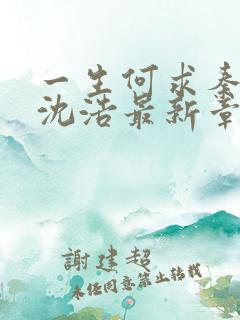 一生何求秦
沈浩最新章
謝建超
未经同意禁止转载